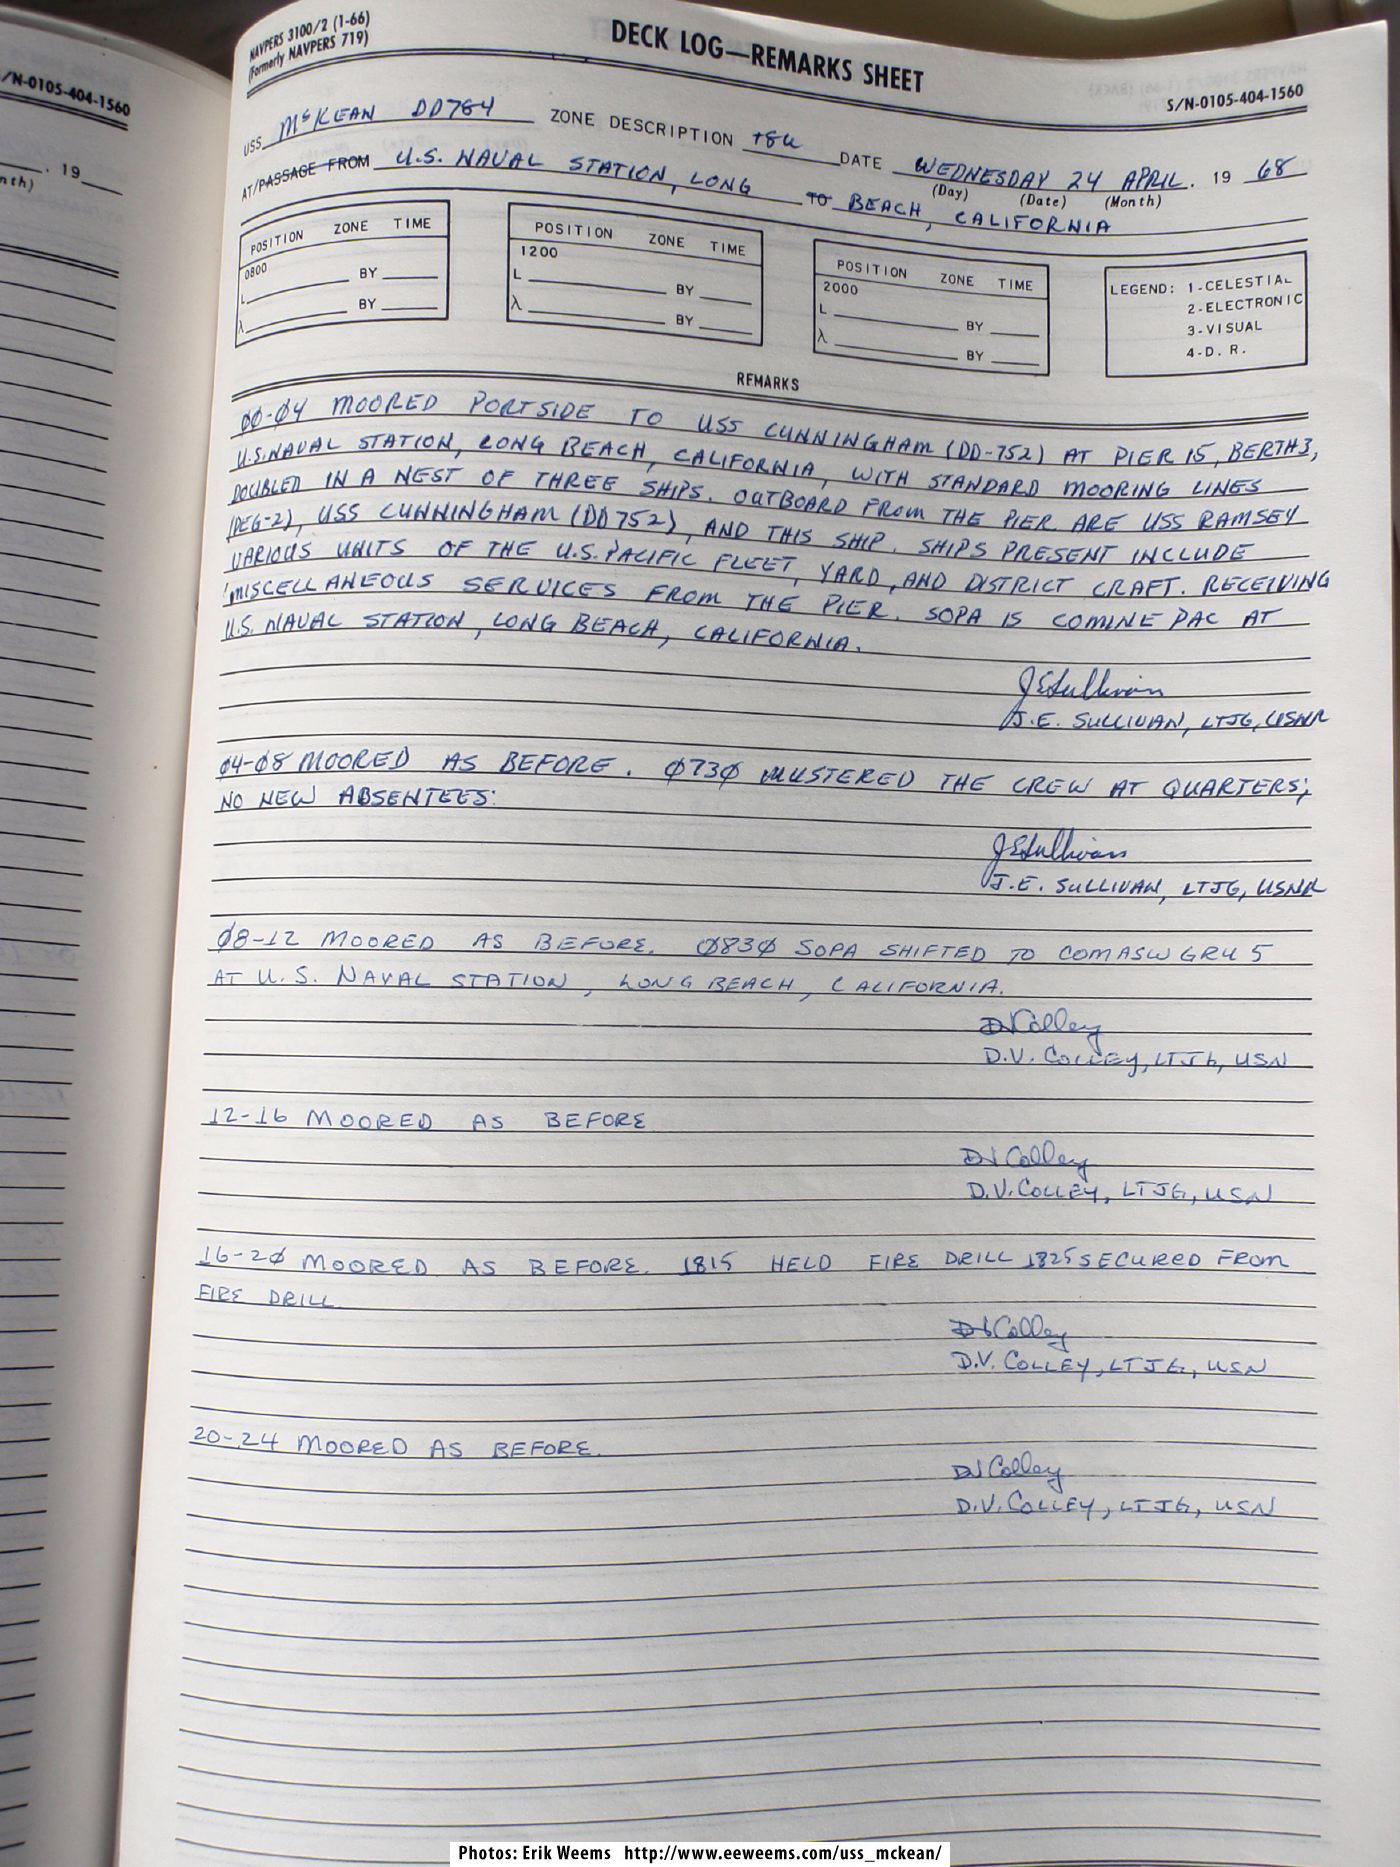 /N-0105-404-1560
. 19
nth)
NAVPERS 3100/2 (1-66)
(Formerly NAVPERS 719)
DECK LOG—REMARKS SHEET
S/N-0105-404-1560
USS McKEAN DD784 ZONE DESCRIPTION +8U DATE WEDNESDAY 24 APRIL. 19 68
(Day) (Date) (Month)
AT/PASSAGE FROM U.S. NAVAL STATION, LONG TO BEACH, CALIFORNIA
POSITION ZONE TIME
0800
L BY
λ BY
POSITION ZONE TIME
1200
L BY
λ BY
POSITION ZONE TIME
2000
L BY
λ BY
LEGEND: 1-CELESTIAL
2-ELECTRONIC
3-VISUAL
4-D. R.
REMARKS
00-04 MOORED PORTSIDE TO USS CUNNINGHAM (DD-752) AT PIER 15, BERTH 3,
U.S. NAVAL STATION, LONG BEACH, CALIFORNIA, WITH STANDARD MOORING LINES
DOUBLED IN A NEST OF THREE SHIPS. OUTBOARD FROM THE PIER ARE USS RAMSEY
(DEG-2), USS CUNNINGHAM (DD752), AND THIS SHIP. SHIPS PRESENT INCLUDE
VARIOUS UNITS OF THE U.S. PACIFIC FLEET, YARD, AND DISTRICT CRAFT. RECEIVING
MISCELLANEOUS SERVICES FROM THE PIER. SOPA IS COMINE PAC AT
U.S. NAVAL STATION, LONG BEACH, CALIFORNIA.
J E Sullivan
J.E. SULLIVAN, LTJG, USNR
04-08 MOORED AS BEFORE. 0730 MUSTERED THE CREW AT QUARTERS;
NO NEW ABSENTEES:
J E Sullivan
J.E. SULLIVAN, LTJG, USNR
08-12 MOORED AS BEFORE. 0830 SOPA SHIFTED TO COMASWGRU 5
AT U.S. NAVAL STATION, LONG BEACH, CALIFORNIA.
DV Colley
D.V. COLLEY, LTJG, USN
12-16 MOORED AS BEFORE
DV Colley
D.V. COLLEY, LTJG, USN
16-20 MOORED AS BEFORE. 1815 HELD FIRE DRILL 1825 SECURED FROM
FIRE DRILL
DV Colley
D.V. COLLEY, LTJG, USN
20-24 MOORED AS BEFORE.
DV Colley
D.V. COLLEY, LTJG, USN
Photos: Erik Weems http://www.eeweems.com/uss_mckean/